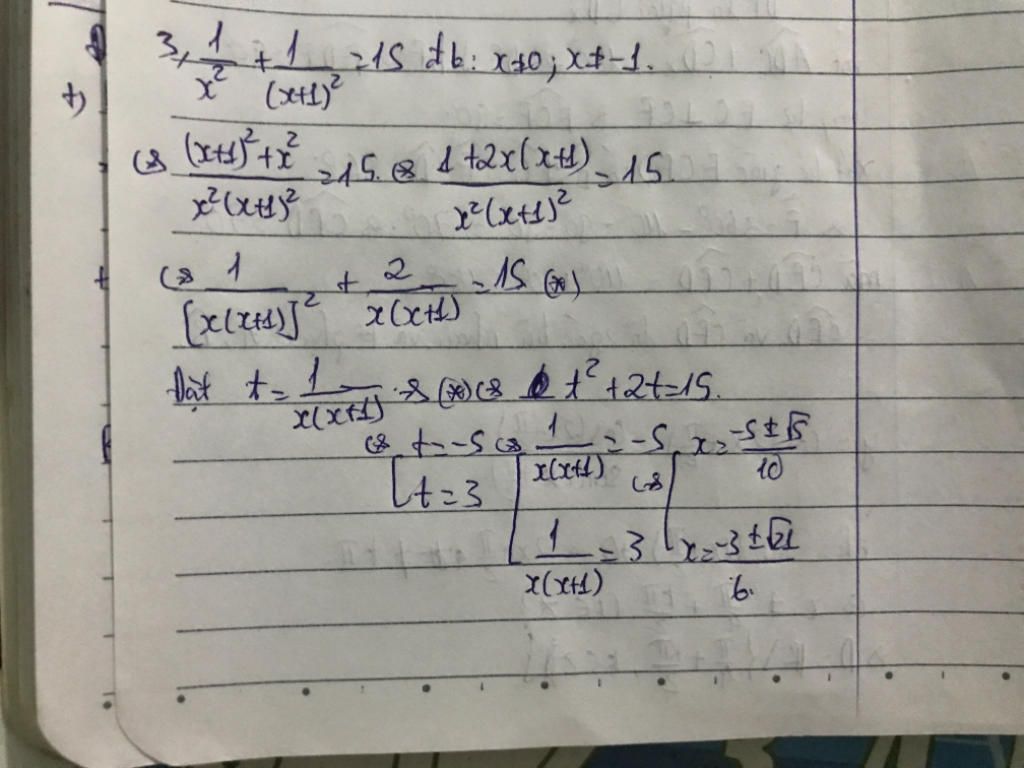 3, 1/x² + 1/(x+1)² = 15 đk: x≠0; x≠-1.
+)
⇔ ((x+1)²+x²)/(x²(x+1)²) = 15. ⇔ (1+2x(x+1))/(x²(x+1)²) = 15.
⇔ 1/[x(x+1)]² + 2/(x(x+1)) = 15 (*)
Đặt t = 1/(x(x+1)) → (*) ⇔ t² + 2t = 15.
⇔ [ t = -5 ⇔ [ 1/(x(x+1)) = -5 ⇔ [ x = (-5 ± √5)/10
t = 3 1/(x(x+1)) = 3 x = (-3 ± √21)/6.